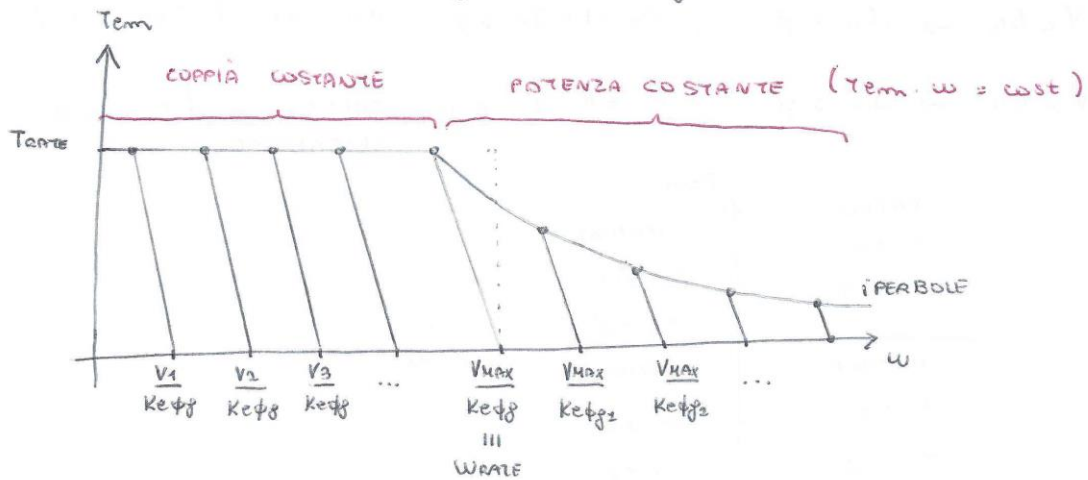 Tem
COPPIA COSTANTE
POTENZA COSTANTE (Tem. ω = cost)
TRATE
iPERBOLE
ω
V1/Keϕf V2/Keϕf V3/Keϕf ... VMAX/Keϕf VMAX/Keϕf1 VMAX/Keϕf2 ...
≡
WRATE